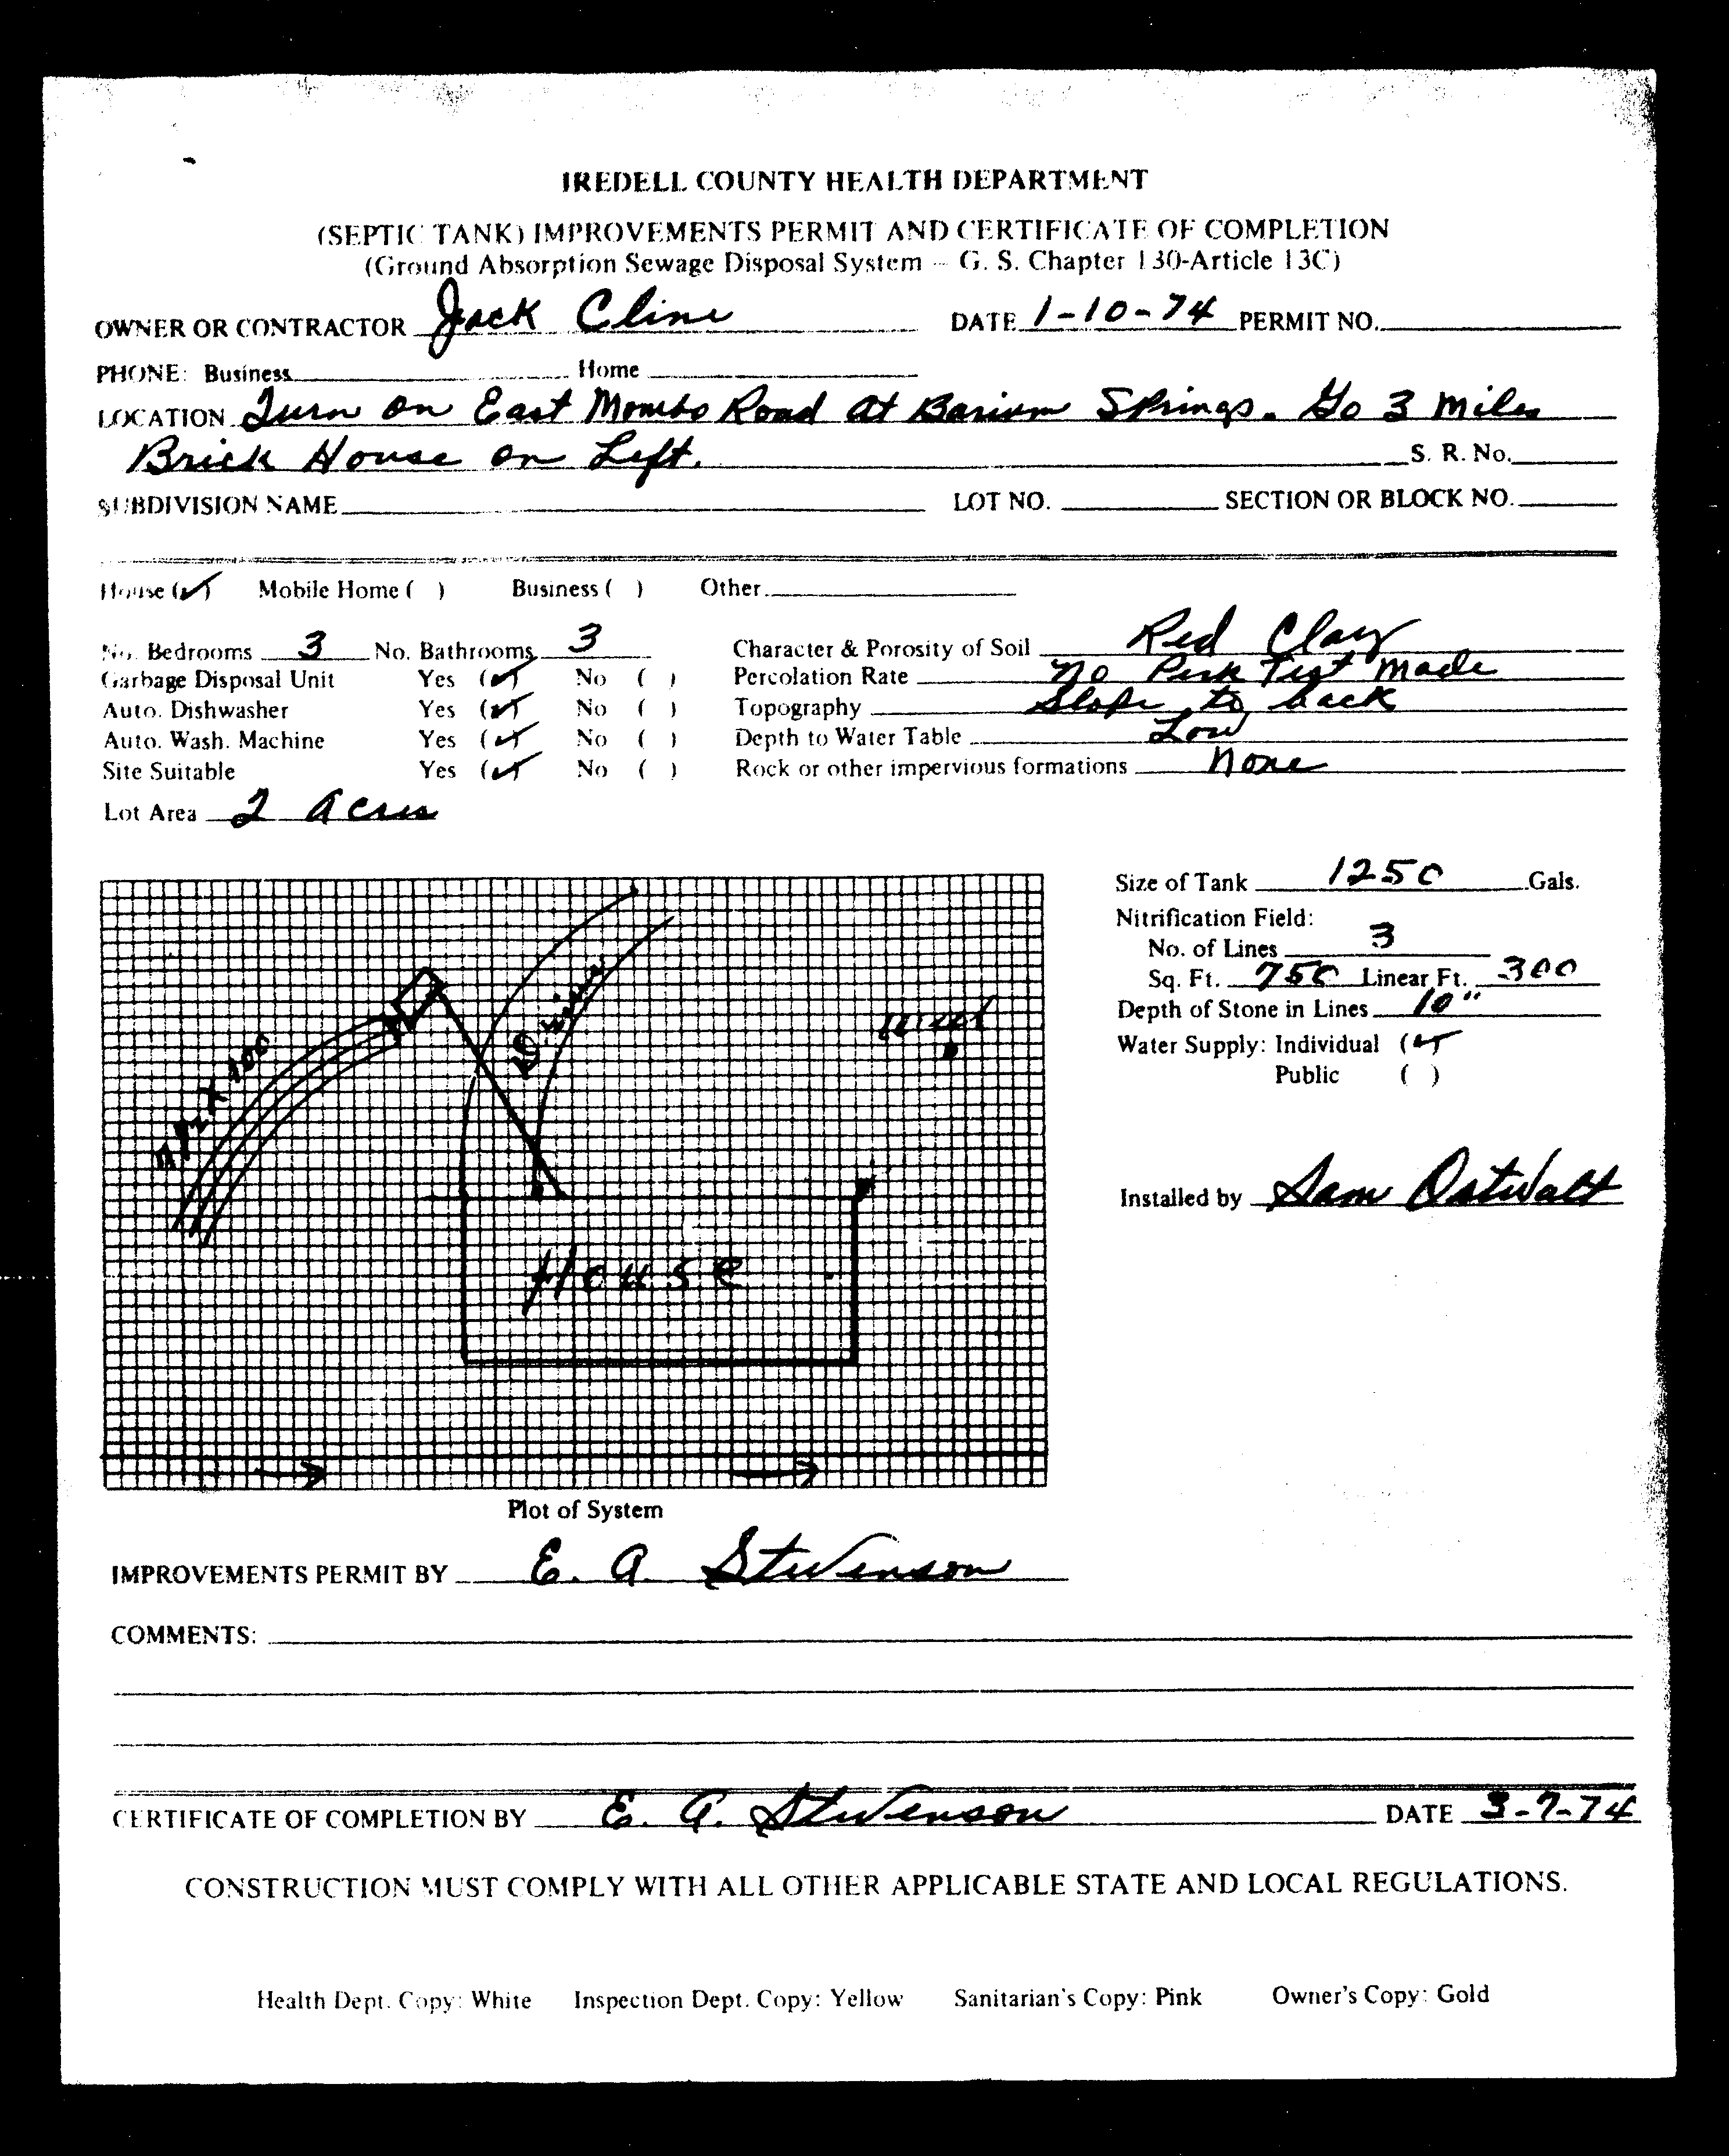 IREDELL COUNTY HEALTH DEPARTMENT
(SEPTIC TANK) IMPROVEMENTS PERMIT AND CERTIFICATE OF COMPLETION
(Ground Absorption Sewage Disposal System - G. S. Chapter 130-Article 13C)
OWNER OR CONTRACTOR Jack Cline DATE 1-10-74 PERMIT NO.
PHONE: Business Home
LOCATION Turn on East Mombo Road at Barium Springs. Go 3 miles
Brick House on Left. S. R. No.
SUBDIVISION NAME LOT NO. SECTION OR BLOCK NO.
House (✓) Mobile Home ( ) Business ( ) Other
No. Bedrooms 3 No. Bathrooms 3 Character & Porosity of Soil Red Clay
Garbage Disposal Unit Yes (✓) No ( ) Percolation Rate No Perk Test Made
Auto. Dishwasher Yes (✓) No ( ) Topography Slope to back
Auto. Wash. Machine Yes (✓) No ( ) Depth to Water Table Low
Site Suitable Yes (✓) No ( ) Rock or other impervious formations None
Lot Area 2 Acres
Size of Tank 1250 Gals.
Nitrification Field:
No. of Lines 3
Sq. Ft. 750 Linear Ft. 300
Depth of Stone in Lines 10"
Water Supply: Individual (✓)
Public ( )
Installed by Sam Ostwalt
X 100
well
House
Plot of System
IMPROVEMENTS PERMIT BY E. A. Stevenson
COMMENTS:
CERTIFICATE OF COMPLETION BY E. A. Stevenson DATE 3-7-74
CONSTRUCTION MUST COMPLY WITH ALL OTHER APPLICABLE STATE AND LOCAL REGULATIONS.
Health Dept. Copy: White Inspection Dept. Copy: Yellow Sanitarian's Copy: Pink Owner's Copy: Gold